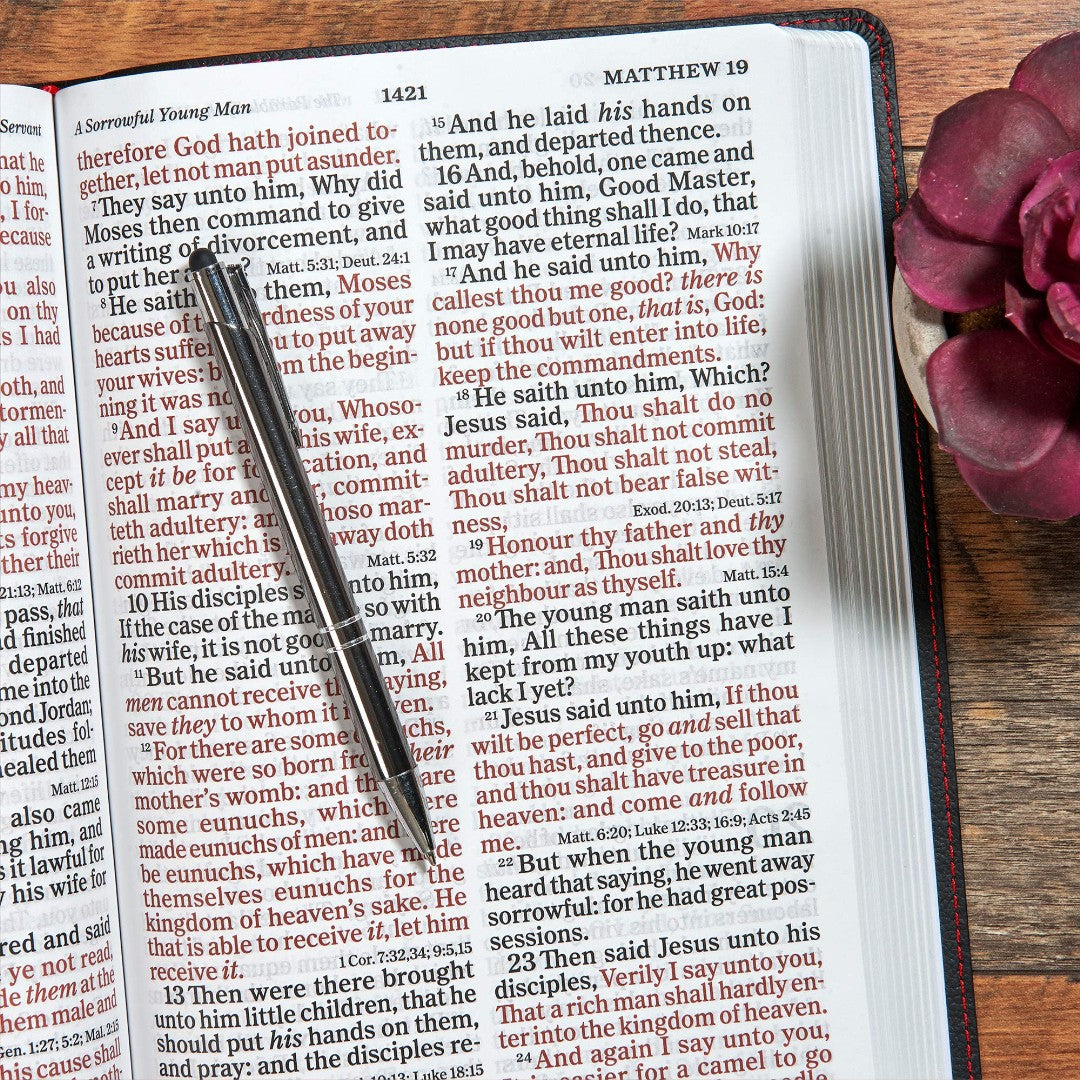 Servant
hat he
o him,
I for-
ecause
ou also
on thy
s I had
oth, and
tormen-
y all that
my heav-
unto you,
ts forgive
other their
21:13; Matt. 6:12
pass, that
d finished
departed
me into the
ond Jordan;
itudes fol-
healed them
Matt. 12:15
also came
ng him, and
s it lawful for
his wife for
red and said
ye not read,
de them at the
hem male and
Gen. 1:27; 5:2; Mal. 2:15
his cause shall
A Sorrowful Young Man
1421
MATTHEW 19
therefore God hath joined to-
gether, let not man put asunder.
7 They say unto him, Why did
Moses then command to give
a writing of divorcement, and
to put her ? Matt. 5:31; Deut. 24:1
8 He saith them, Moses
because of rdness of your
hearts suffe ou to put away
your wives: om the begin-
ning it was no
9 And I say you, Whoso-
ever shall put a his wife, ex-
cept it be for fo cation, and
shall marry an commit-
teth adultery: an hoso mar-
rieth her which is away doth
commit adultery. Matt. 5:32
10 His disciples s nto him,
If the case of the ma so with
his wife, it is not goo marry.
11 But he said unto m, All
men cannot receive th aying,
save they to whom it i ven.
12 For there are some chs,
which were so born fro heir
mother's womb: and th are
some eunuchs, which ere
made eunuchs of men: and ere
be eunuchs, which have made
themselves eunuchs for the
kingdom of heaven's sake. He
that is able to receive it, let him
receive it. 1 Cor. 7:32,34; 9:5,15
13 Then were there brought
unto him little children, that he
should put his hands on them,
and pray: and the disciples re-
Luke 18:15
15 And he laid his hands on
them, and departed thence.
16 And, behold, one came and
said unto him, Good Master,
what good thing shall I do, that
I may have eternal life? Mark 10:17
17 And he said unto him, Why
callest thou me good? there is
none good but one, that is, God:
but if thou wilt enter into life,
keep the commandments.
18 He saith unto him, Which?
Jesus said, Thou shalt do no
murder, Thou shalt not commit
adultery, Thou shalt not steal,
Thou shalt not bear false wit-
ness, Exod. 20:13; Deut. 5:17
19 Honour thy father and thy
mother: and, Thou shalt love thy
neighbour as thyself. Matt. 15:4
20 The young man saith unto
him, All these things have I
kept from my youth up: what
lack I yet?
21 Jesus said unto him, If thou
wilt be perfect, go and sell that
thou hast, and give to the poor,
and thou shalt have treasure in
heaven: and come and follow
me. Matt. 6:20; Luke 12:33; 16:9; Acts 2:45
22 But when the young man
heard that saying, he went away
sorrowful: for he had great pos-
sessions.
23 Then said Jesus unto his
disciples, Verily I say unto you,
That a rich man shall hardly en-
ter into the kingdom of heaven.
24 And again I say unto you,
easier for a camel to go